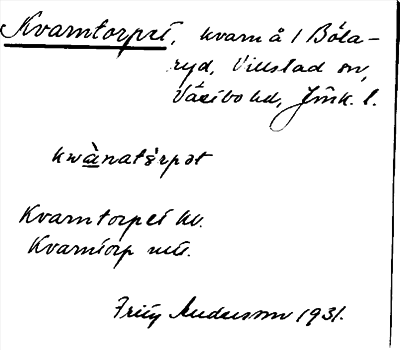 Kvarntorpet, kvarn å 1 Böla-
ryd, Villstad sn,
Västbo hd, Jönk. l.
kwànatǝrpǝt
Kvarntorpet kv.
Kvarntorp
Fritz Andersson 1931.